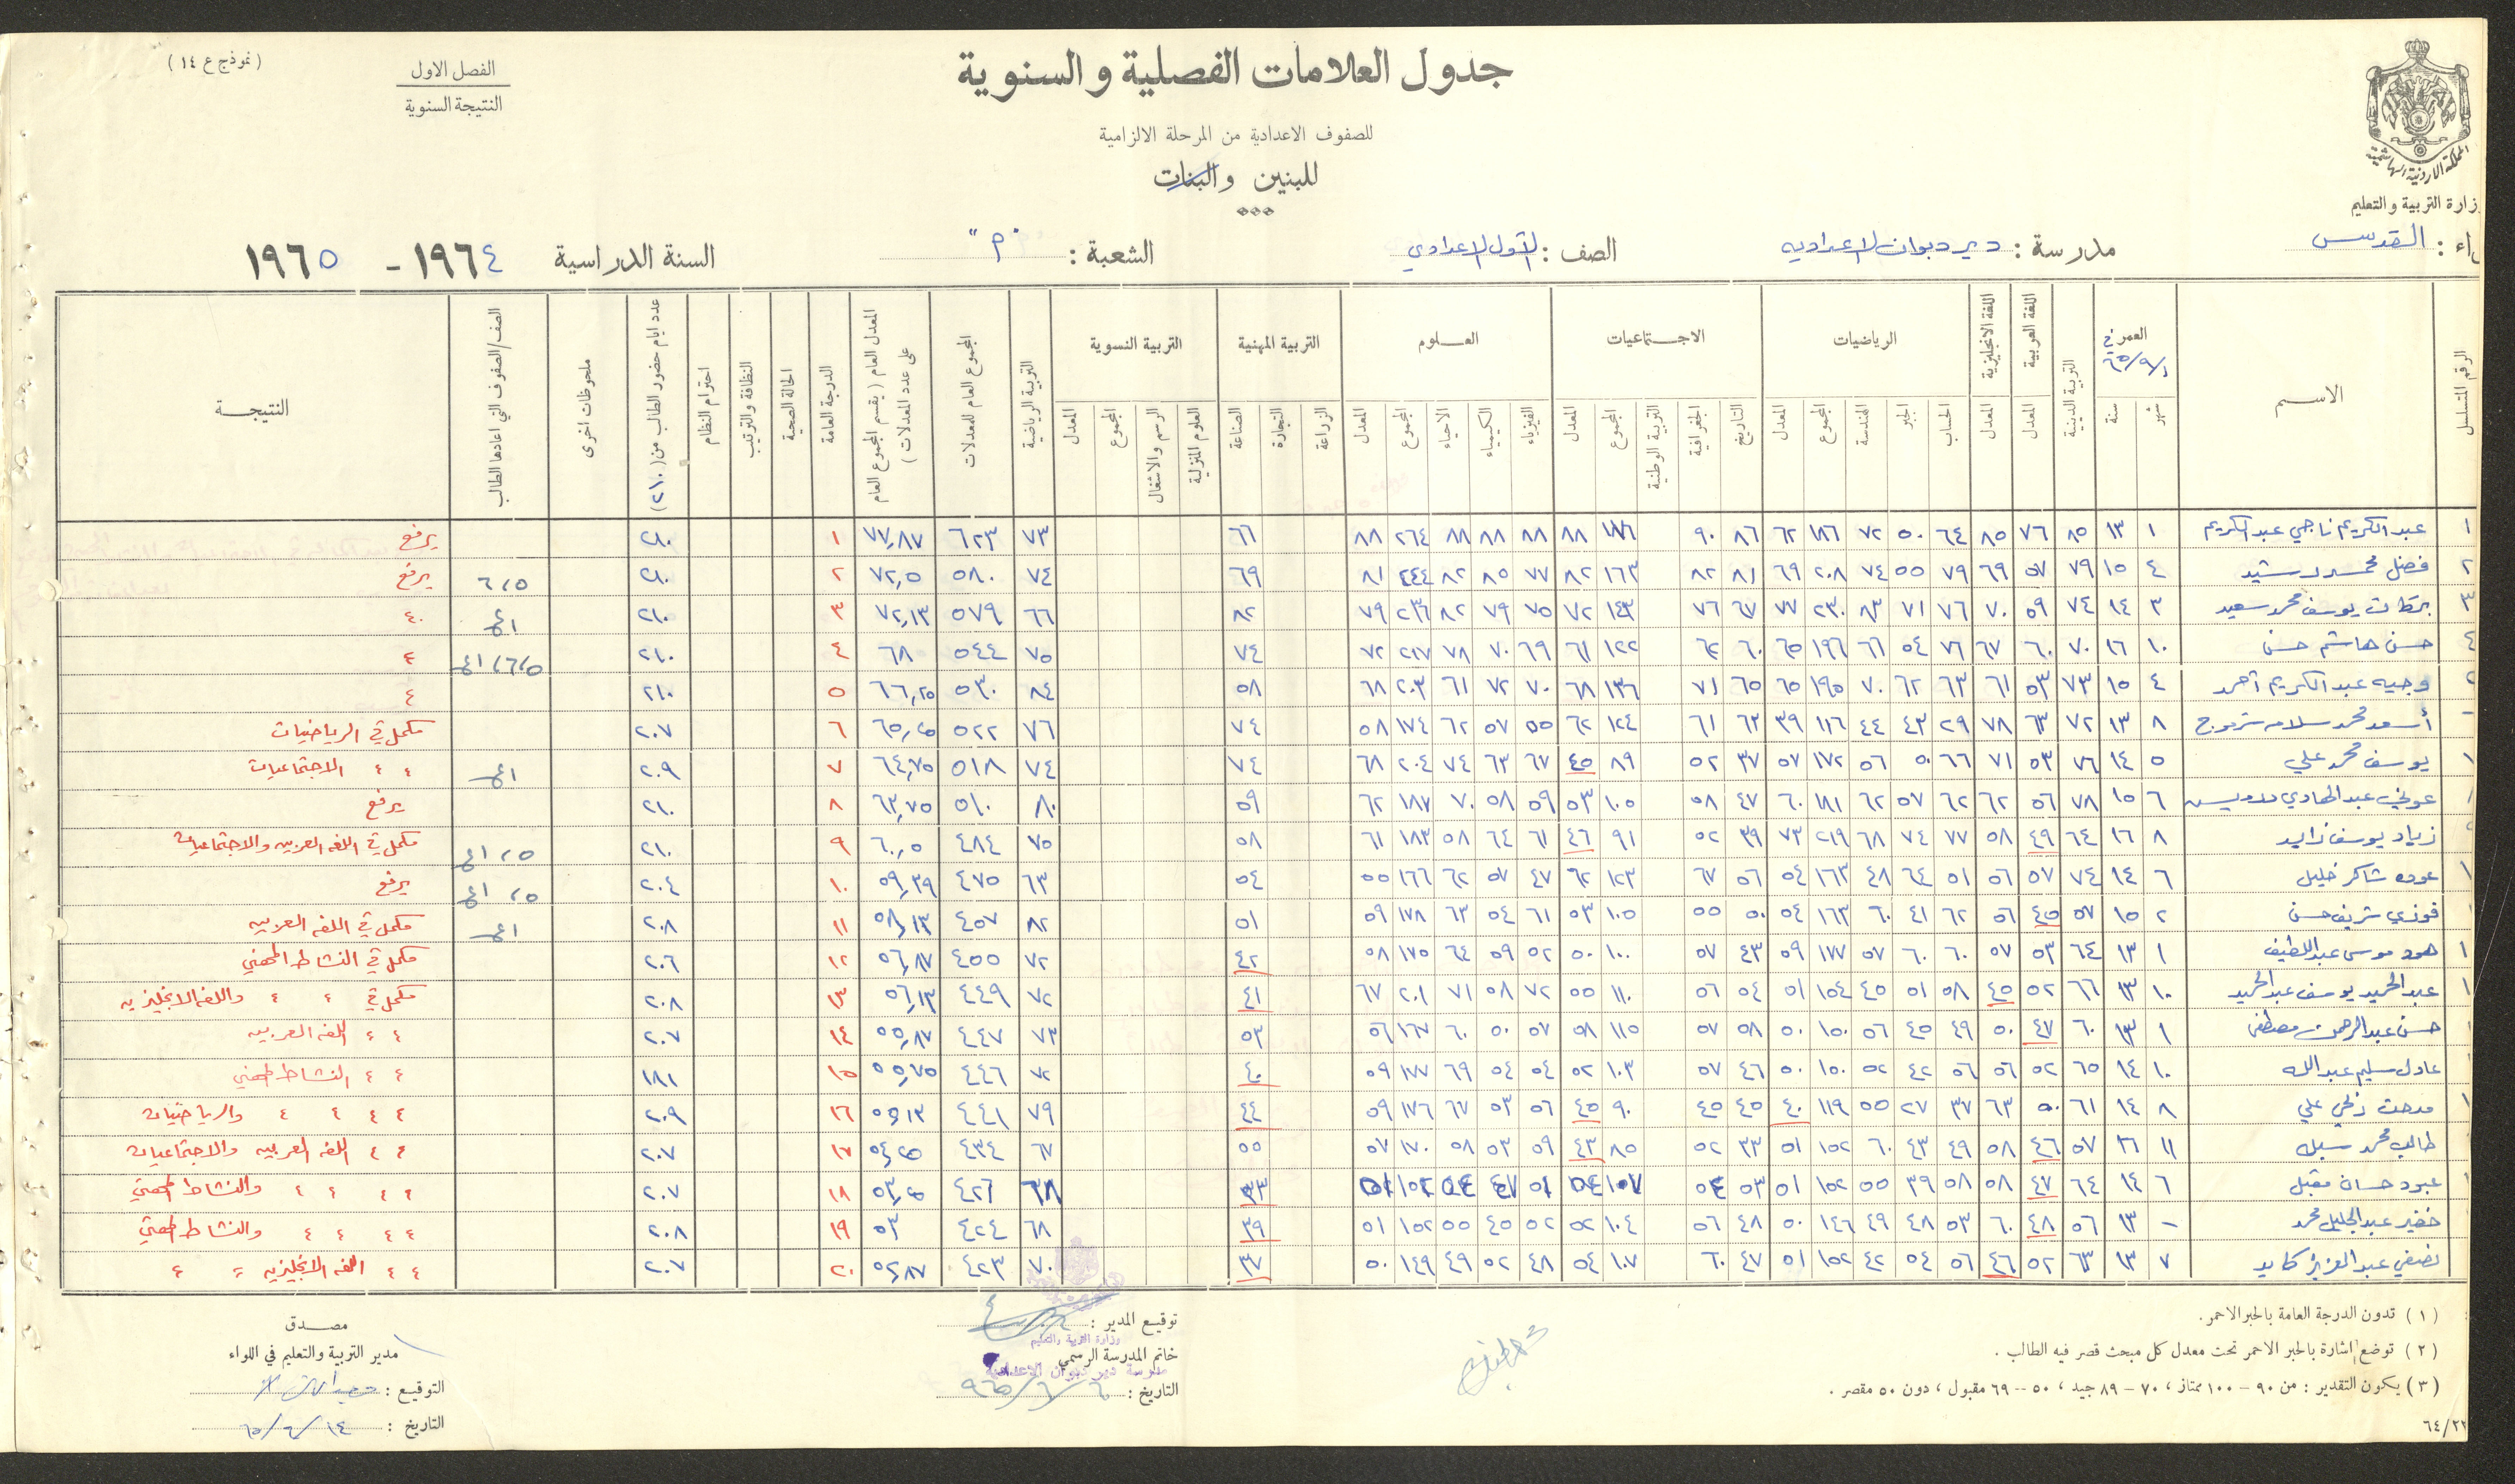 (نموذج ع ١٤)
الفصل الاول
النتيجة السنوية
جدول العلامات الفصلية والسنوية
للصفوف الاعدادية من المرحلة الالزامية
للبنين والبنات
المملكة الاردنية الهاشمية
وزارة التربية والتعليم
لواء : القدس
مدرسة : دير دبوان الاعدادية
الصف : الأول الاعدادي
الشعبة : "م"
السنة الدراسية ١٩٦٤ - ١٩٦٥
الرقم المتسلسل
الاسم
العمر في
شهر
سنة
التربية الدينية
اللغة العربية
المعدل
اللغة الانجليزية
المعدل
الرياضيات
الحساب
الجبر
الهندسة
المجموع
المعدل
الاجتماعيات
التاريخ
الجغرافية
التربية الوطنية
المجموع
المعدل
العلوم
الفيزياء
الكيمياء
الاحياء
المجموع
المعدل
التربية المهنية
الزراعة
التجارة
الصناعة
التربية النسوية
العلوم المنزلية
الرسم والاشغال
المجموع
المعدل
التربية الرياضية
المجموع العام للمعدلات
المعدل العام (يقسم المجموع العام على عدد المعدلات)
الدرجة العامة
الحالة الصحية
النظافة والترتيب
احترام النظام
عدد ايام حضور الطالب من (٢١٠)
ملحوظات اخرى
الصف/الصفوف التي اعادها الطالب
النتيجة
١ عبد الكريم ناجي عبد الكريم ١ ١٣ ٨٥ ٧٦ ٨٥ ٦٤ ٥٠ ٧٢ ١٨٦ ٦٢ ٨٦ ٩٠ ١٧٦ ٨٨ ٨٨ ٨٨ ٨٨ ٢٦٤ ٨٨ ٦٦ ٧٣ ٦٢٣ ٧٧,٨٧ ١ ٢١٠ يرفع
٢ فضل محمد رشيد ٤ ١٥ ٧٩ ٥٧ ٦٩ ٧٩ ٥٥ ٧٤ ٢٠٨ ٦٩ ٨١ ٨٢ ١٦٣ ٨٢ ٧٧ ٨٥ ٨٢ ٢٤٤ ٨١ ٦٩ ٧٤ ٥٨٠ ٧٢,٥ ٢ ٢١٠ ٦،٥ يرفع
٣ بركات يوسف محمد سعيد ٣ ١٤ ٧٤ ٥٩ ٧٠ ٧٦ ٧١ ٨٣ ٢٣٠ ٧٧ ٦٧ ٧٦ ١٤٣ ٧٢ ٧٥ ٧٩ ٨٢ ٢٣٦ ٧٩ ٨٢ ٦٦ ٥٧٩ ٧٢,١٣ ٣ ٢١٠
٤ حسن هاشم حسن ١٠ ١٦ ٧٠ ٦٠ ٦٧ ٧٦ ٥٤ ٦٦ ١٩٦ ٦٥ ٦٠ ٦٢ ١٢٢ ٦١ ٦٩ ٧٠ ٧٨ ٢١٧ ٧٢ ٧٤ ٧٥ ٥٤٤ ٦٨ ٤ ٢١٠
وجيه عبد الكريم أحمد ٤ ١٥ ٧٣ ٥٣ ٦١ ٦٣ ٦٢ ٧٠ ١٩٥ ٦٥ ٦٥ ٧١ ١٣٦ ٦٨ ٧٠ ٧٢ ٦١ ٢٠٣ ٦٨ ٥٨ ٨٤ ٥٣٠ ٦٦,٢٥ ٥ ٢١٠
أسعد محمد سلامه ٨ ١٣ ٧٢ ٦٣ ٧٨ ٢٩ ٤٣ ٤٤ ١١٦ ٣٩ ٦٣ ٦١ ١٢٤ ٦٢ ٥٥ ٥٧ ٦٢ ١٧٤ ٥٨ ٧٤ ٧٦ ٥٢٢ ٦٥,٢٥ ٦ ٢٠٧ مكمل في الرياضيات
يوسف محمد علي ٥ ١٤ ٧٦ ٥٣ ٧١ ٦٦ ٥٠ ٥٦ ١٧٢ ٥٧ ٣٧ ٥٢ ٨٩ ٤٥ ٦٧ ٦٣ ٧٤ ٢٠٤ ٦٨ ٧٤ ٧٤ ٥١٨ ٦٤,٧٥ ٧ ٢٠٩ ٤ ٤ الاجتماعيات
عوني عبد الهادي ٦ ١٥ ٧٨ ٥٦ ٦٢ ٦٢ ٥٧ ٦٢ ١٨١ ٦٠ ٤٧ ٥٨ ١٠٥ ٥٣ ٥٩ ٥٨ ٧٠ ١٨٧ ٦٢ ٥٩ ٨٠ ٥١٠ ٦٣,٧٥ ٨ ٢١٠ يرفع
زياد يوسف زايد ٨ ١٦ ٦٤ ٤٩ ٥٨ ٧٧ ٧٤ ٦٨ ٢١٩ ٧٣ ٣٩ ٥٢ ٩١ ٤٦ ٦١ ٦٤ ٥٨ ١٨٣ ٦١ ٥٨ ٧٥ ٤٨٤ ٦٠,٥ ٩ ٢١٠ مكمل في اللغه العربيه والاجتماعيات
عوده شاكر خليل ٦ ١٤ ٧٤ ٥٧ ٥٦ ٥١ ٦٤ ٤٨ ١٦٣ ٥٤ ٥٦ ٦٧ ١٢٣ ٦٢ ٤٧ ٥٧ ٦٢ ١٦٦ ٥٥ ٥٤ ٦٣ ٤٧٥ ٥٩,٣٩ ١٠ ٢٠٤ يرفع
فوزي شريف حسن ٢ ١٥ ٥٧ ٤٥ ٥٦ ٦٢ ٤١ ٦٠ ١٦٣ ٥٤ ٥٠ ٥٥ ١٠٥ ٥٣ ٦١ ٥٤ ٦٣ ١٧٨ ٥٩ ٥١ ٨٢ ٤٥٧ ٥٧,١٣ ١١ ٢٠٨ مكمل في اللغه العربيه
حمود موسى عبد اللطيف ١ ١٣ ٦٤ ٥٣ ٥٧ ٦٠ ٦٠ ٥٧ ١٧٧ ٥٩ ٤٣ ٥٧ ١٠٠ ٥٠ ٥٢ ٥٩ ٦٤ ١٧٥ ٥٨ ٤٢ ٧٢ ٤٥٥ ٥٦,٨٧ ١٢ ٢٠٦ مكمل في النشاط المهني
عبد الحميد يوسف عبد الحميد ١٠ ١٣ ٦٦ ٥٢ ٤٥ ٥٨ ٥١ ٤٥ ١٥٤ ٥١ ٥٤ ٥٦ ١١٠ ٥٥ ٧٢ ٥٨ ٧١ ٢٠١ ٦٧ ٤١ ٧٢ ٤٤٩ ٥٦,١٣ ١٣ ٢٠٨ مكمل في ٤ ٤ واللغه الانجليزيه
حسن عبد الرحمن مصطفى ١ ١٣ ٦٠ ٤٧ ٥٠ ٤٩ ٤٥ ٥٦ ١٥٠ ٥٠ ٥٨ ٥٧ ١١٥ ٥٨ ٥٧ ٥٠ ٦٠ ١٦٧ ٥٦ ٥٣ ٧٣ ٤٤٧ ٥٥,٨٧ ١٤ ٢٠٧ ٤ ٤ اللغه العربيه
عادل سليم عبد الله ١٠ ١٤ ٦٥ ٥٢ ٥٦ ٥٦ ٤٢ ٥٢ ١٥٠ ٥٠ ٤٦ ٥٧ ١٠٣ ٥٢ ٥٤ ٥٤ ٦٩ ١٧٧ ٥٩ ٤٠ ٧٢ ٤٤٦ ٥٥,٧٥ ١٥ ١٨١ ٤ ٤ النشاط المهني
مدحت فتحي علي ٨ ١٤ ٦١ ٥٠ ٦٣ ٣٧ ٢٧ ٥٥ ١١٩ ٤٠ ٤٥ ٤٥ ٩٠ ٤٥ ٥٦ ٥٣ ٦٧ ١٧٦ ٥٩ ٤٤ ٧٩ ٤٤١ ٥٥,١٣ ١٦ ٢٠٩ ٤ ٤ ٤ ٤ والرياضيات
طالب محمد ١١ ١٦ ٥٧ ٤٦ ٥٨ ٤٩ ٤٣ ٦٠ ١٥٢ ٥١ ٣٣ ٥٢ ٨٥ ٤٣ ٥٩ ٥٣ ٥٨ ١٧٠ ٥٧ ٥٥ ٦٧ ٤٣٤ ٥٤,٢٥ ١٧ ٢٠٧ ٤ ٤ اللغه العربيه والاجتماعيات
عبود حسان مقبل ٦ ١٤ ٦٤ ٤٧ ٥٨ ٥٨ ٣٩ ٥٥ ١٥٢ ٥١ ٥٣ ٥٤ ١٠٧ ٥٤ ٥١ ٤٧ ٥٤ ١٥٢ ٥١ ٣٣ ٦٨ ٤٢٦ ٥٣,٢٥ ١٨ ٢٠٧ ٤ ٤ ٤ ٤ والنشاط المهني
خضير عبد الجليل محمد - ١٣ ٥٦ ٤٨ ٦٠ ٥٣ ٤٨ ٤٩ ١٤٦ ٥٠ ٤٨ ٥٦ ١٠٤ ٥٢ ٥٢ ٤٥ ٥٥ ١٥٢ ٥١ ٣٩ ٦٨ ٤٢٤ ٥٣ ١٩ ٢٠٨ ٤ ٤ ٤ ٤ والنشاط المهني
نصفي عبد العزيز كايد ٧ ١٣ ٦٣ ٥٢ ٤٦ ٥٦ ٥٤ ٤٢ ١٥٢ ٥١ ٤٧ ٦٠ ١٠٧ ٥٤ ٤٨ ٥٢ ٤٩ ١٤٩ ٥٠ ٣٧ ٧٠ ٤٢٣ ٥٢,٨٧ ٢٠ ٢٠٧ ٤ ٤ اللغه الانجليزيه ٤ ٤
(١) تدون الدرجة العامة بالحبر الاحمر.
(٢) توضع اشارة بالحبر الاحمر تحت معدل كل مبحث قصر فيه الطالب.
(٣) يكون التقدير : من ٩٠ - ١٠٠ ممتاز ، ٧٠ - ٨٩ جيد ، ٥٠ -- ٦٩ مقبول ، دون ٥٠ مقصر.
توقيع المدير :
وزارة التربية والتعليم
خاتم المدرسة الرسمي
مدرسة دير دبوان الاعدادية
التاريخ :
مصدق
مدير التربية والتعليم في اللواء
التوقيع :
التاريخ : ١٤/٦/٦٥
٦٤/٢٢